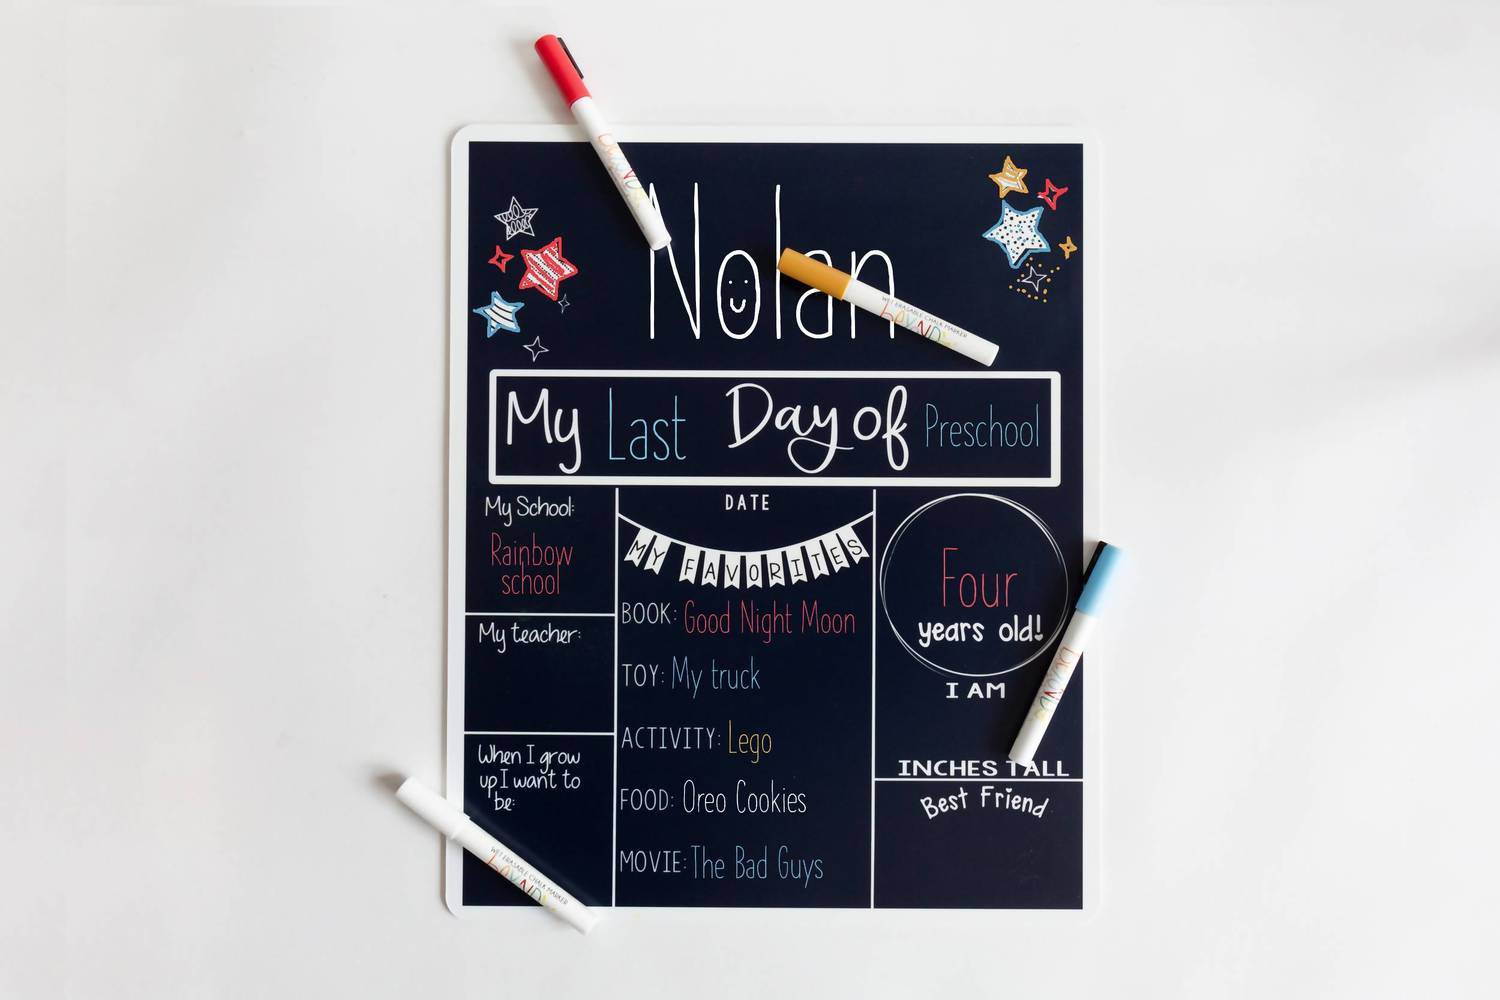 Nolan
My Last Day of Preschool
My School:
Rainbow
school
My teacher:
When I grow
up I want to
be:
DATE
MY FAVORITES
BOOK: Good Night Moon
TOY: My truck
ACTIVITY: Lego
FOOD: Oreo Cookies
MOVIE: The Bad Guys
Four
years old!
I AM
INCHES TALL
Best Friend
WET ERASABLE CHALK MARKER
WET ERASABLE CHALK MARKER